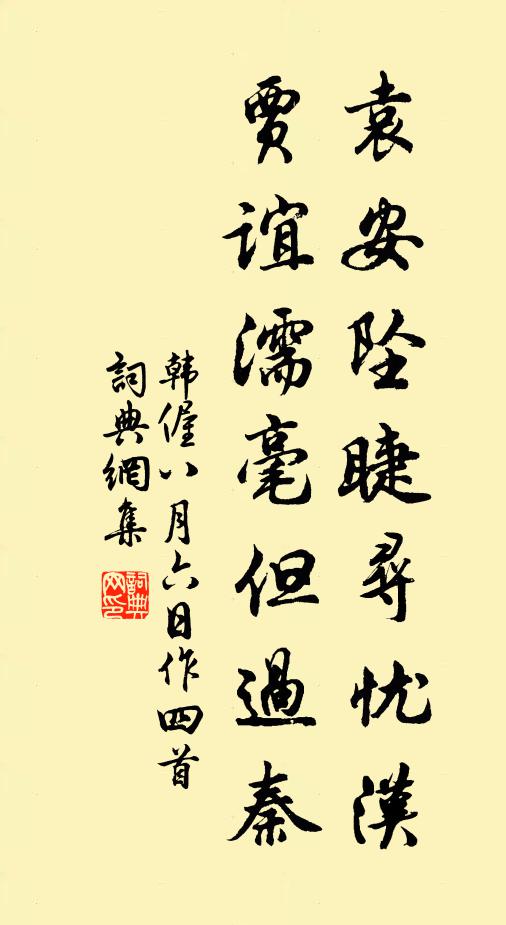 袁安坠睫尋忧漢
賈誼濡毫但過秦
韩偓八月六日作四首
詞典網集
詞典网印